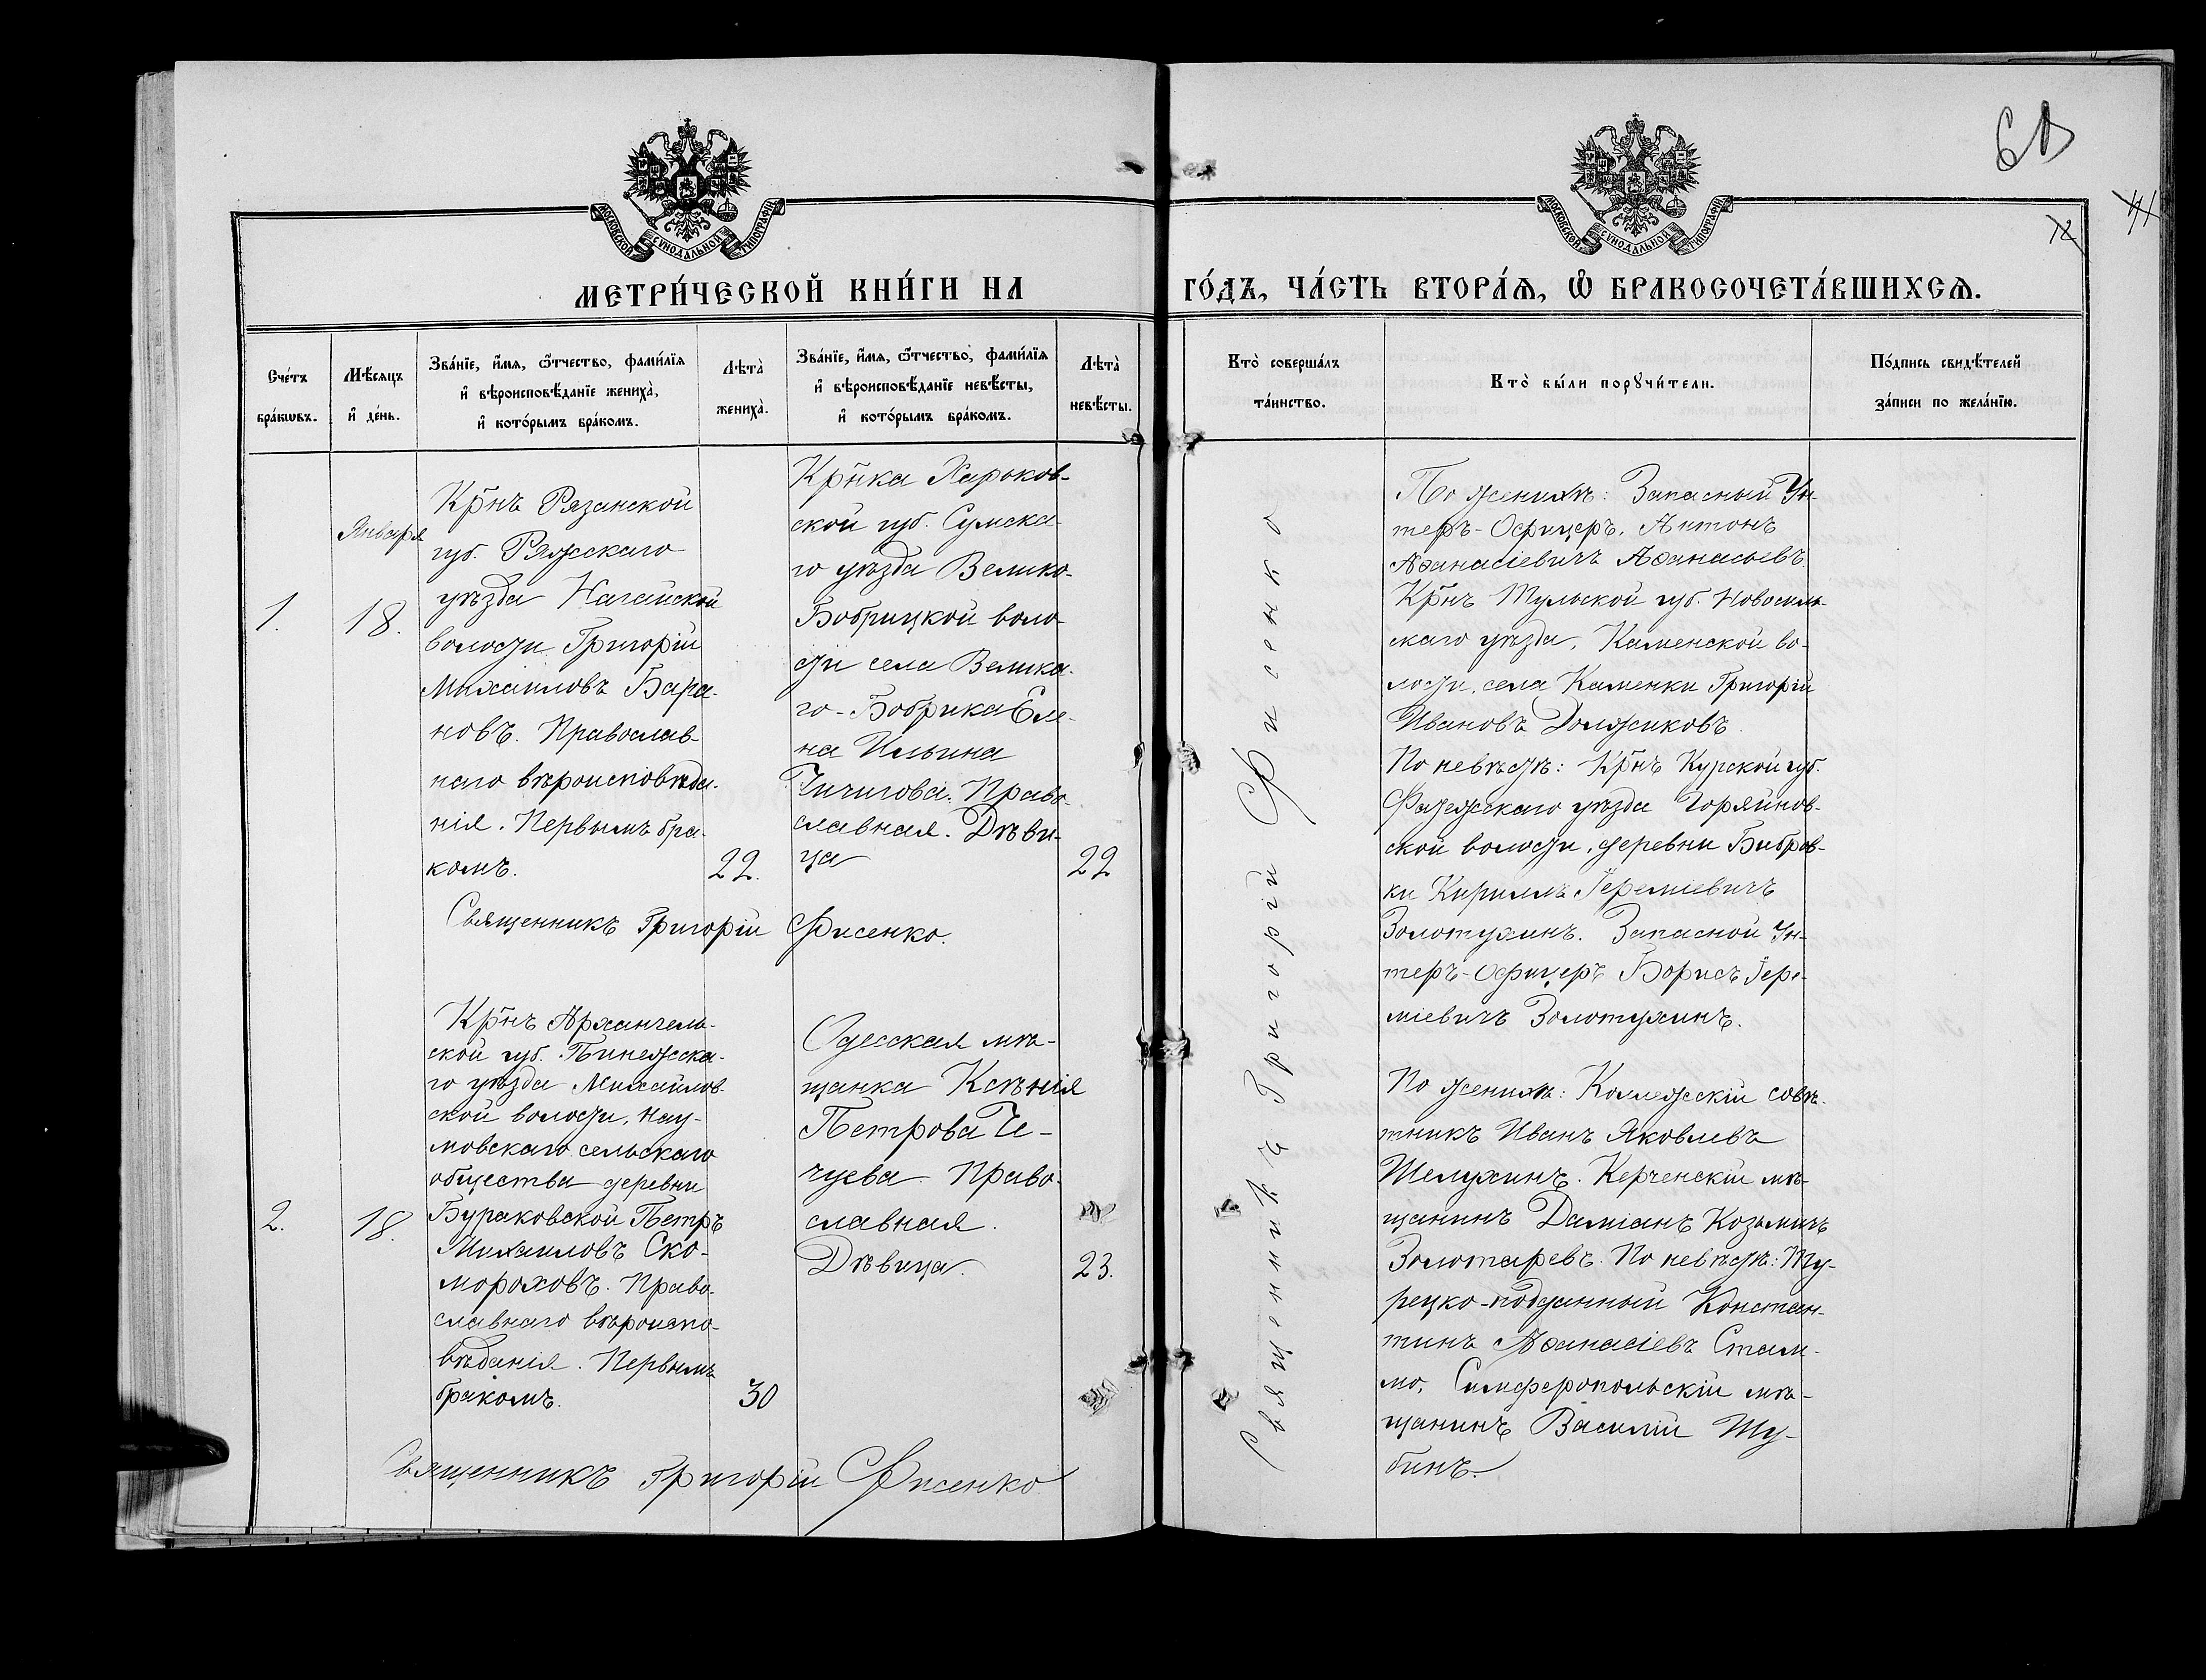 61
МОСКОВСКОЙ СѴНОДАЛЬНОЙ ТИПОГРАФІИ
МОСКОВСКОЙ СѴНОДАЛЬНОЙ ТИПОГРАФІИ
12
МЕТРИ́ЧЕСКОЙ КНИ́ГИ НА
ГО́ДЪ, ЧА́СТЬ ВТОРА́Ѧ, Ѽ БРАКОСОЧЕТА́ВШИХСѦ.
Сче́тъ
бра́кѡвъ.
Мѣ́сяцъ
и҆ де́нь.
Зва́нїе, и҆́мя, ѻ҆́тчество, фами́лїя
и҆ вѣроисповѣ́данїе жениха̀,
и҆ кото́рымъ бра́комъ.
Лѣта̀
жениха̀.
Зва́нїе, и҆́мя, ѻ҆́тчество, фами́лїя
и҆ вѣроисповѣ́данїе невѣ́сты,
и҆ кото́рымъ бра́комъ.
Лѣта̀
невѣ́сты.
Кто̀ соверша́лъ
та́инство.
Кто̀ бы́ли порꙋчи́тели.
По́дпись свидѣ́телей
за́писи по жела́нїю.
1.
Января
18.
Кр̃нъ Рязанской
губ. Ряжскаго
уѣзда Нагайской
волости Григорій
Михаиловъ Бара-
новъ. Православ-
наго вѣроисповѣда-
нія. Первымъ бра-
комъ.
22.
Кр̃нка Харьков-
ской губ. Сумска-
го уѣзда Велико-
Бобрицкой воло-
сти села Велика-
го-Бобрика Еле-
на Ильина
Чичигова. Право-
славная. Дѣви-
ца
22
Священникъ Григорій Фисенко.
Священникъ Григорій Фисенко
По женихѣ: Запасный Ун-
теръ-Офицеръ, Антонъ
Аѳанасіевичъ Аѳанасьевъ
Кр̃нъ Тульской губ. Новосиль-
скаго уѣзда, Каменской во-
лости, села Каменки Григорій
Ивановъ Должиковъ.
По невѣстѣ: Кр̃нъ Курской губ.
Фатежскаго уѣзда Горяйнов-
ской волости, деревни Бибров-
ки Кириллъ Іереміевичъ
Золотухинъ. Запасной Ун-
теръ-Офицеръ Борисъ Іере-
міевичъ Золотухинъ.
2.
18.
Кр̃нъ Архангель-
ской губ. Пинежска-
го уѣзда Михайлов-
ской волости, Нау-
мовскаго сельскаго
общества деревни
Бураковской Петръ
Михаиловъ Ско-
мороховъ. Право-
славнаго вѣроиспо-
вѣданія. Первымъ
бракомъ.
30
Одесская мѣ-
щанка Ксѣнія
Петрова Че-
чуева. Право-
славная.
Дѣвица.
23.
Священникъ Григорій Фисенко
По женихѣ: Коллежскій совѣ-
тникъ Иванъ Яковлевъ
Шелухинъ. Керченскій мѣ-
щанинъ Даміанъ Козьмичъ
Золотаревъ. По невѣстѣ: Ту-
рецко-подданный Констан-
тинъ Аѳанасіевъ Стам-
мо, Симферопольскій мѣ-
щанинъ Василій Шу-
бинъ.